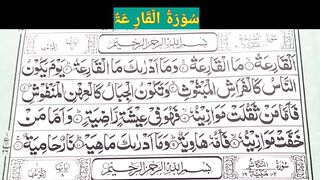 سُوْرَۃُ الْقَارِعَۃُ
بِسْمِ اللّٰهِ الرَّحْمٰنِ الرَّحِيْمِ
اَلْقَارِعَةُ مَا الْقَارِعَةُ وَمَاۤ اَدْرٰىكَ مَا الْقَارِعَةُ يَوْمَ يَكُوْنُ
النَّاسُ كَالْفَرَاشِ الْمَبْثُوْثِ وَتَكُوْنُ الْجِبَالُ كَالْعِهْنِ الْمَنْفُوْشِ
فَاَمَّا مَنْ ثَقُلَتْ مَوَازِيْنُهٗ فَهُوَ فِيْ عِيْشَةٍ رَّاضِيَةٍ وَاَمَّا مَنْ
خَفَّتْ مَوَازِيْنُهٗ فَاُمُّهٗ هَاوِيَةٌ وَمَاۤ اَدْرٰىكَ مَاهِيَهْ نَارٌ حَامِيَةٌ
بِسْمِ اللّٰهِ الرَّحْمٰنِ الرَّحِيْمِ